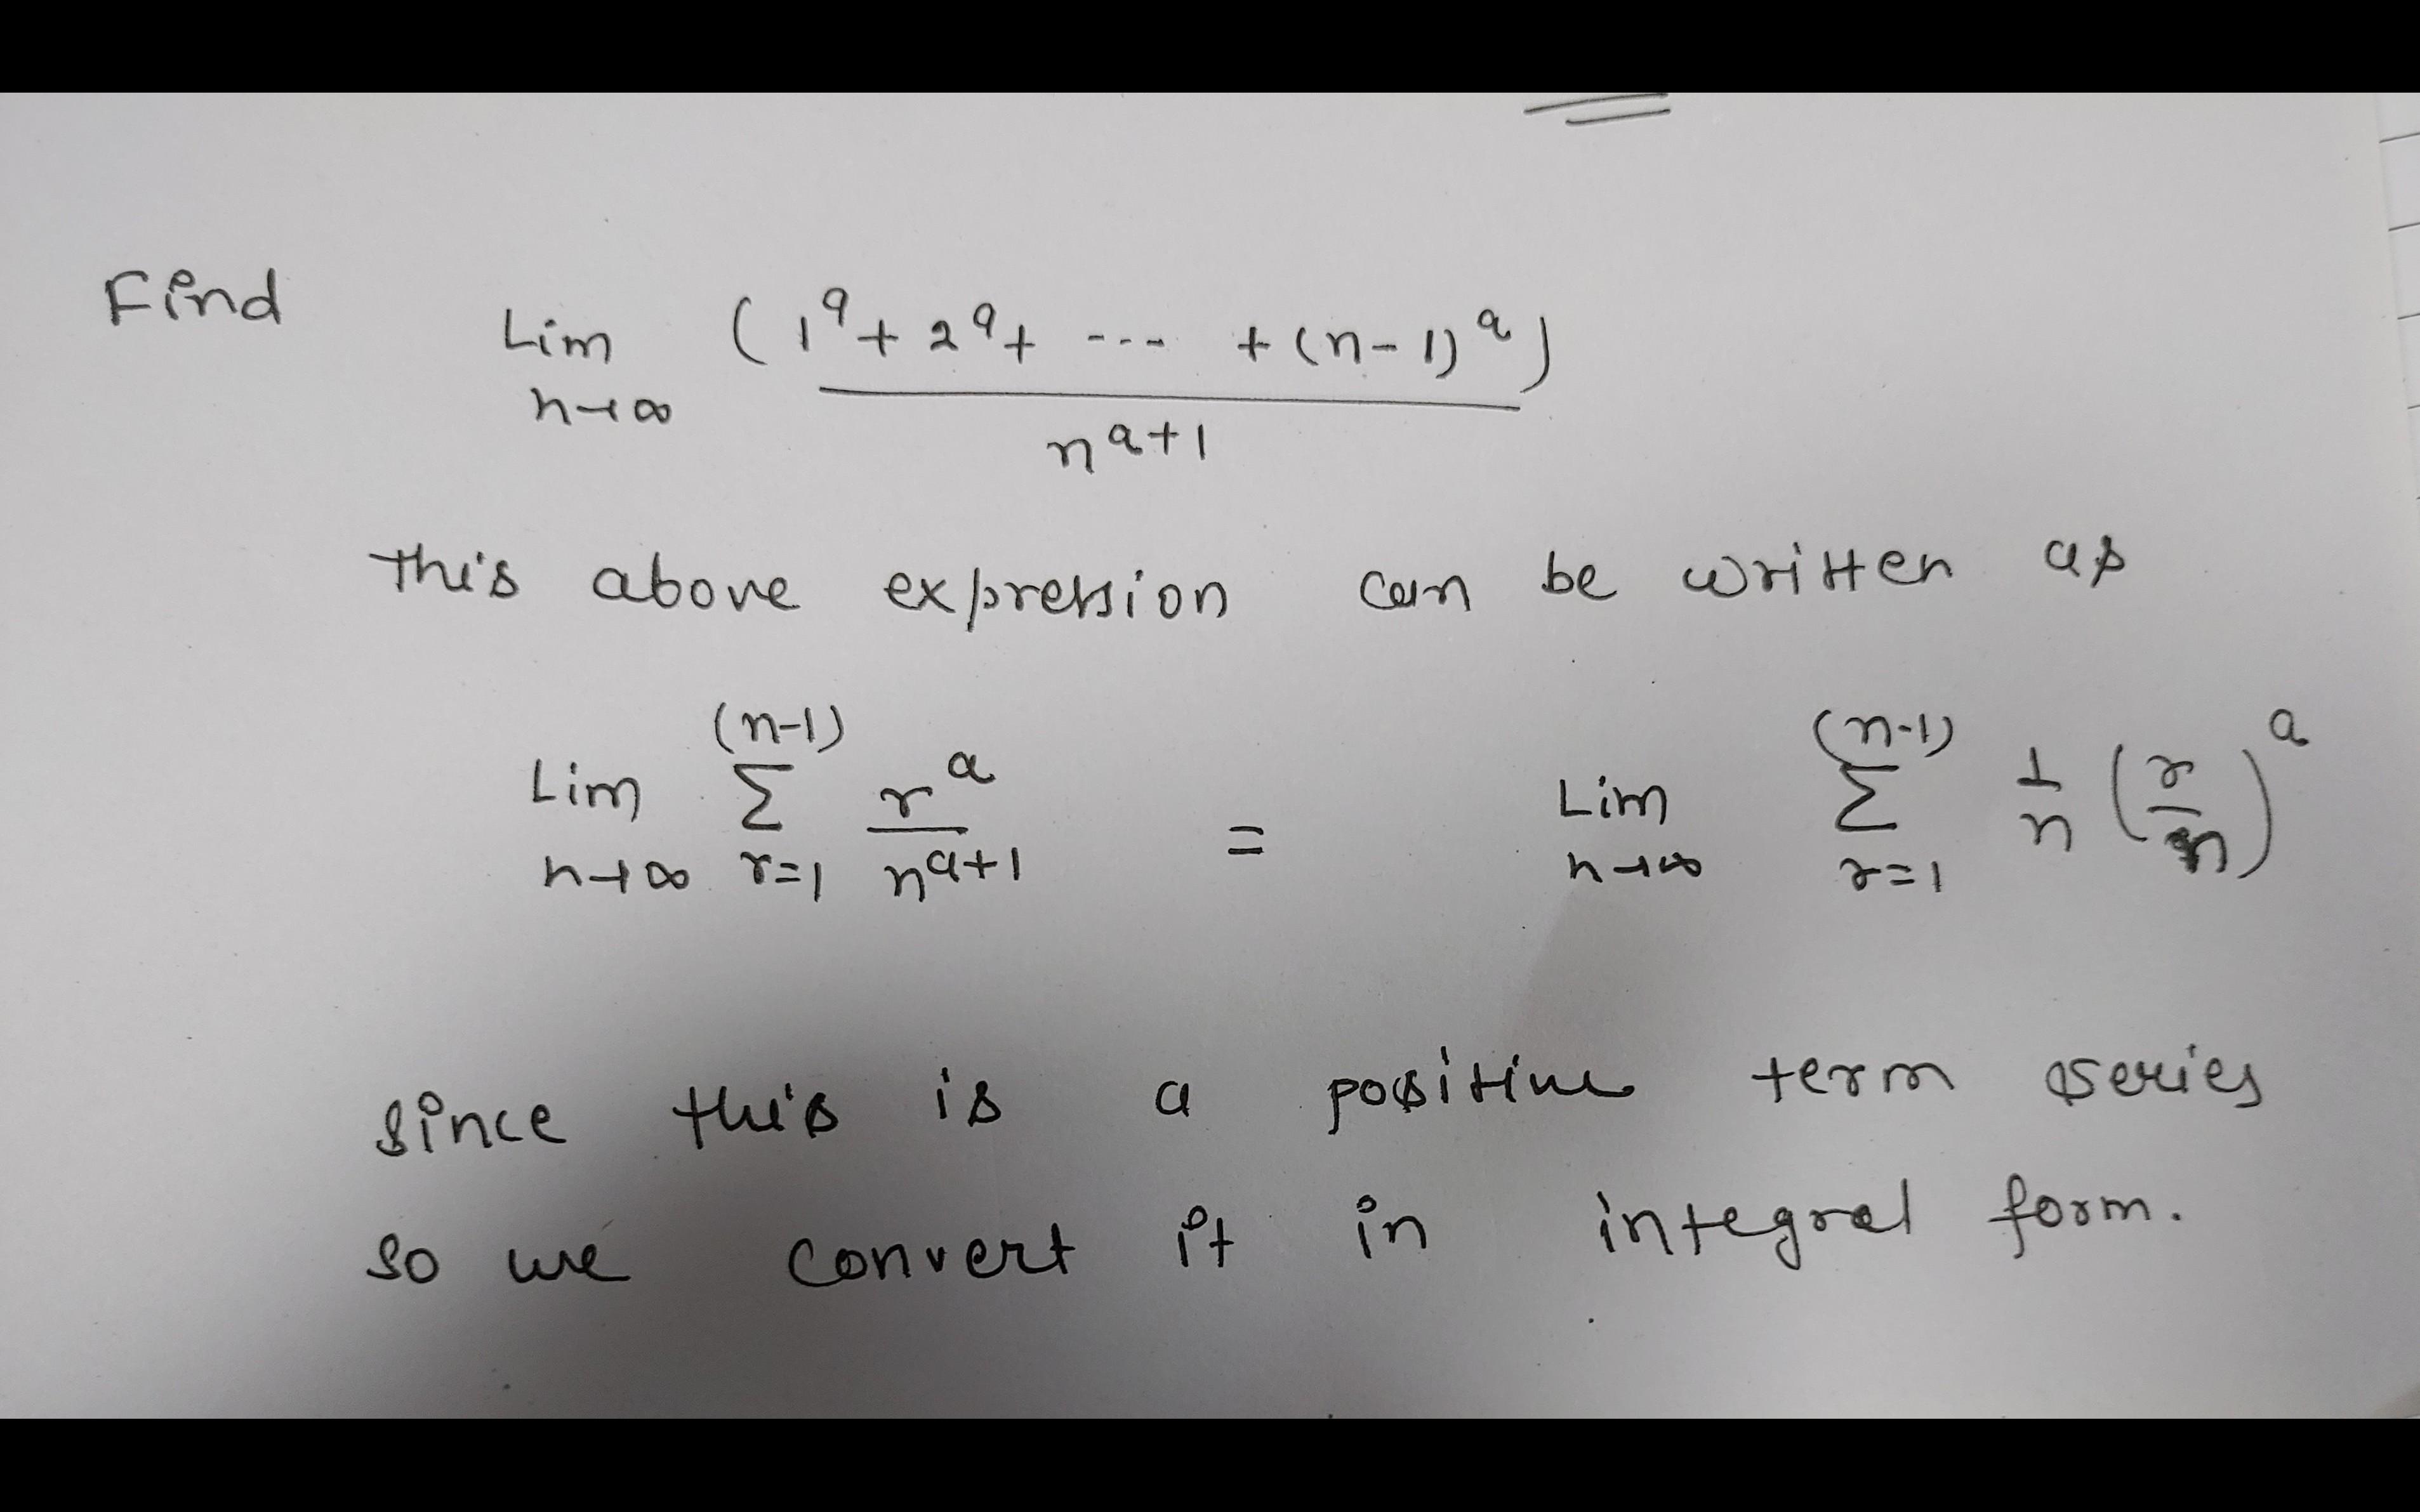 Find
Lim (1^a + 2^a + ---- + (n-1)^a)
n→∞ n^a+1
this above expression can be written as
Lim (n-1) Σ r^a = Lim (n-1) Σ 1/n (r/n)^a
n→∞ r=1 n^a+1 n→∞ r=1
since this is a positive term series
so we convert it in integral form.